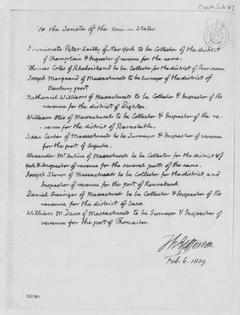 To the Senate of the United States.
I nominate Peter Sailly of New York to be Collector of the district
of Champlain & Inspector of revenue for the same.
Thomas Coles of Rhodeisland to be Collector for the district of Providence
Joseph Marquand of Massachusets to be Surveyor of the district of
Newbury port
Nathaniel Williams of Massachusets to be Collector & Inspector of the
revenue for the district of Dighton.
William Otis of Massachusets to be Collector & Inspector of the re-
venue for the district of Barnstable.
Isaac Carter of Massachusets to be Surveyor & Inspector of revenue
for the port of Augusta.
Alexander McIntire of Massachusets to be Collector for the district of
York & Inspector of revenue for the several ports of the same.
Joseph Storer of Massachusets to be Collector for the district, and
Inspector of revenue for the port of Kennebunk
Daniel Granger of Massachusets to be Collector & Inspector of the
revenue for the district of Saco
William M. Dawes of Massachusets to be Surveyor & Inspector of
revenue for the port of Thomaston.
Th: Jefferson
Feb. 6. 1809.